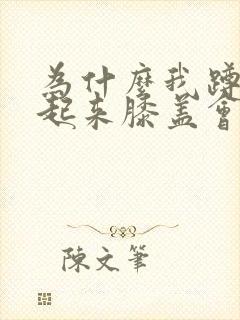 為什麼我蹲
起來膝蓋會
陳文筆